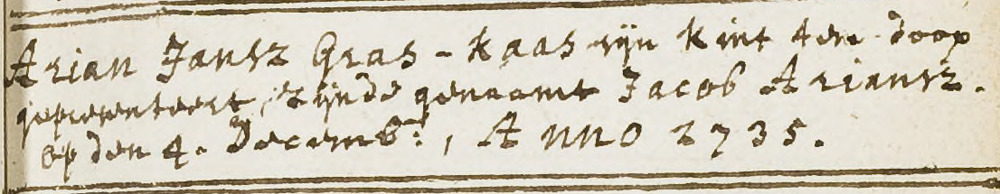 Arian Jansz Gras-kaas zijn kint ten doop
gepresenteert, zijnde genaamt Jacob Ariansz.
op den 4. Decembr:, Anno 1735.